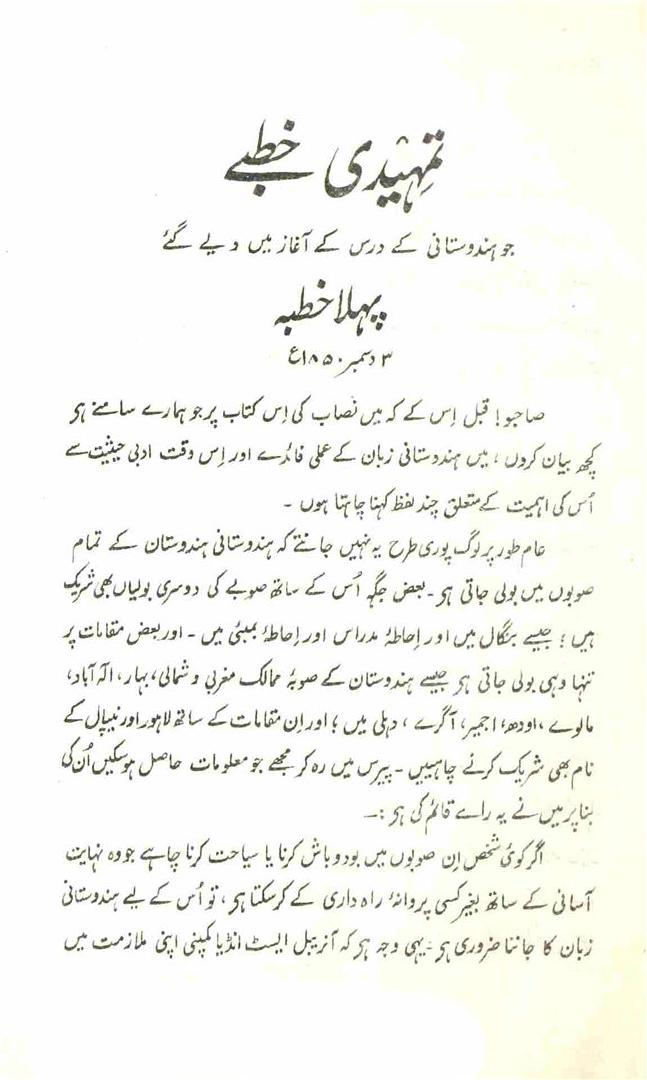 تمہیدی خطبے
جو ہندوستانی کے درس کے آغاز میں دیے گئے
پہلا خطبہ
۳ دسمبر ۱۸۵۰ع
صاحبو! قبل اِس کے کہ میں نصاب کی اِس کتاب پر جو ہمارے سامنے ہو
کچھ بیان کروں، میں ہندوستانی زبان کے عملی فائدے اور اِس وقت ادبی حیثیت سے
اُس کی اہمیت کے متعلق چند لفظ کہنا چاہتا ہوں ۔
عام طور پر لوگ پوری طرح یہ نہیں جانتے کہ ہندوستانی ہندوستان کے تمام
صوبوں میں بولی جاتی ہو ۔ بعض جگہ اُس کے ساتھ صوبے کی دوسری بولیاں بھی شریک
ہیں؛ جیسے بنگال میں اور اِحاطۂ مدراس اور اِحاطۂ بمبئی میں ۔ اور بعض مقامات پر
تنہا وہی بولی جاتی ہو جیسے ہندوستان کے صوبۂ ممالک مغربی و شمالی، بہار، الہ آباد،
مالوے، اودھ، اجمیر، آگرے، دہلی میں؛ اور اِن مقامات کے ساتھ لاہور اور نیپال کے
نام بھی شریک کرنے چاہییں ۔ پیرس میں رہ کر مجھے جو معلومات حاصل ہوسکیں اُن کی
بنا پر میں نے یہ راے قائم کی ہو :۔
اگر کوئی شخص اِن صوبوں میں بود و باش کرنا یا سیاحت کرنا چاہے جو وہ نہایت
آسانی کے ساتھ بغیر کسی پروانۂ راہ داری کے کرسکتا ہو، تو اُس کے لیے ہندوستانی
زبان کا جاننا ضروری ہو ۔ یہی وجہ ہو کہ آنریبل ایسٹ انڈیا کمپنی اپنی ملازمت میں